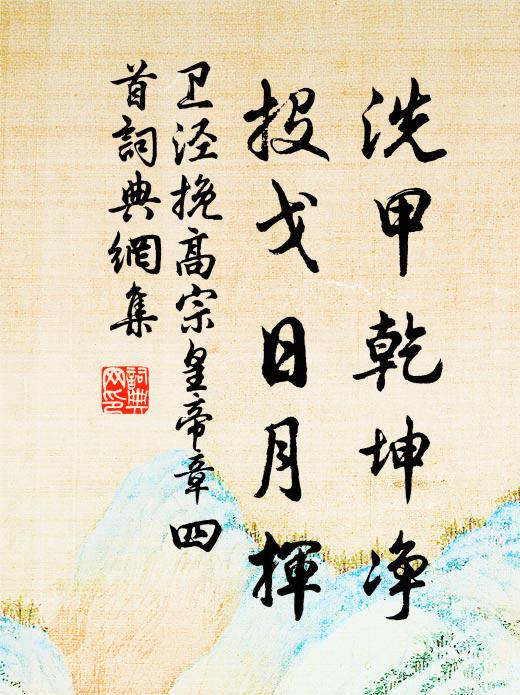 洗甲乾坤净
投戈日月揮
卫泾挽高宗皇帝章四
首詞典網集
詞典
网印